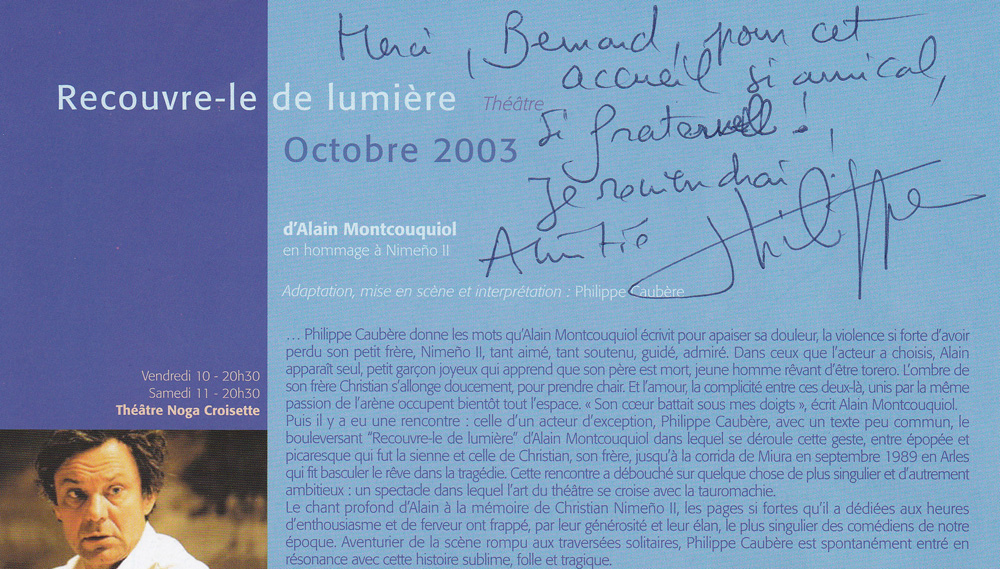 Merci, Bernard, pour cet
accueil si amical,
si fraternel !,
Je reviendrai.
Amitié
Philippe
Recouvre-le de lumière Théâtre
Octobre 2003
d'Alain Montcouquiol
en hommage à Nimeño II
Adaptation, mise en scène et interprétation : Philippe Caubère
Vendredi 10 - 20h30
Samedi 11 - 20h30
Théâtre Noga Croisette
... Philippe Caubère donne les mots qu'Alain Montcouquiol écrivit pour apaiser sa douleur, la violence si forte d'avoir
perdu son petit frère, Nimeño II, tant aimé, tant soutenu, guidé, admiré. Dans ceux que l'acteur a choisis, Alain
apparaît seul, petit garçon joyeux qui apprend que son père est mort, jeune homme rêvant d'être torero. L'ombre de
son frère Christian s'allonge doucement, pour prendre chair. Et l'amour, la complicité entre ces deux-là, unis par la même
passion de l'arène occupent bientôt tout l'espace. « Son cœur battait sous mes doigts », écrit Alain Montcouquiol.
Puis il y a eu une rencontre : celle d'un acteur d'exception, Philippe Caubère, avec un texte peu commun, le
bouleversant "Recouvre-le de lumière" d'Alain Montcouquiol dans lequel se déroule cette geste, entre épopée et
picaresque qui fut la sienne et celle de Christian, son frère, jusqu'à la corrida de Miura en septembre 1989 en Arles
qui fit basculer le rêve dans la tragédie. Cette rencontre a débouché sur quelque chose de plus singulier et d'autrement
ambitieux : un spectacle dans lequel l'art du théâtre se croise avec la tauromachie.
Le chant profond d'Alain à la mémoire de Christian Nimeño II, les pages si fortes qu'il a dédiées aux heures
d'enthousiasme et de ferveur ont frappé, par leur générosité et leur élan, le plus singulier des comédiens de notre
époque. Aventurier de la scène rompu aux traversées solitaires, Philippe Caubère est spontanément entré en
résonance avec cette histoire sublime, folle et tragique.